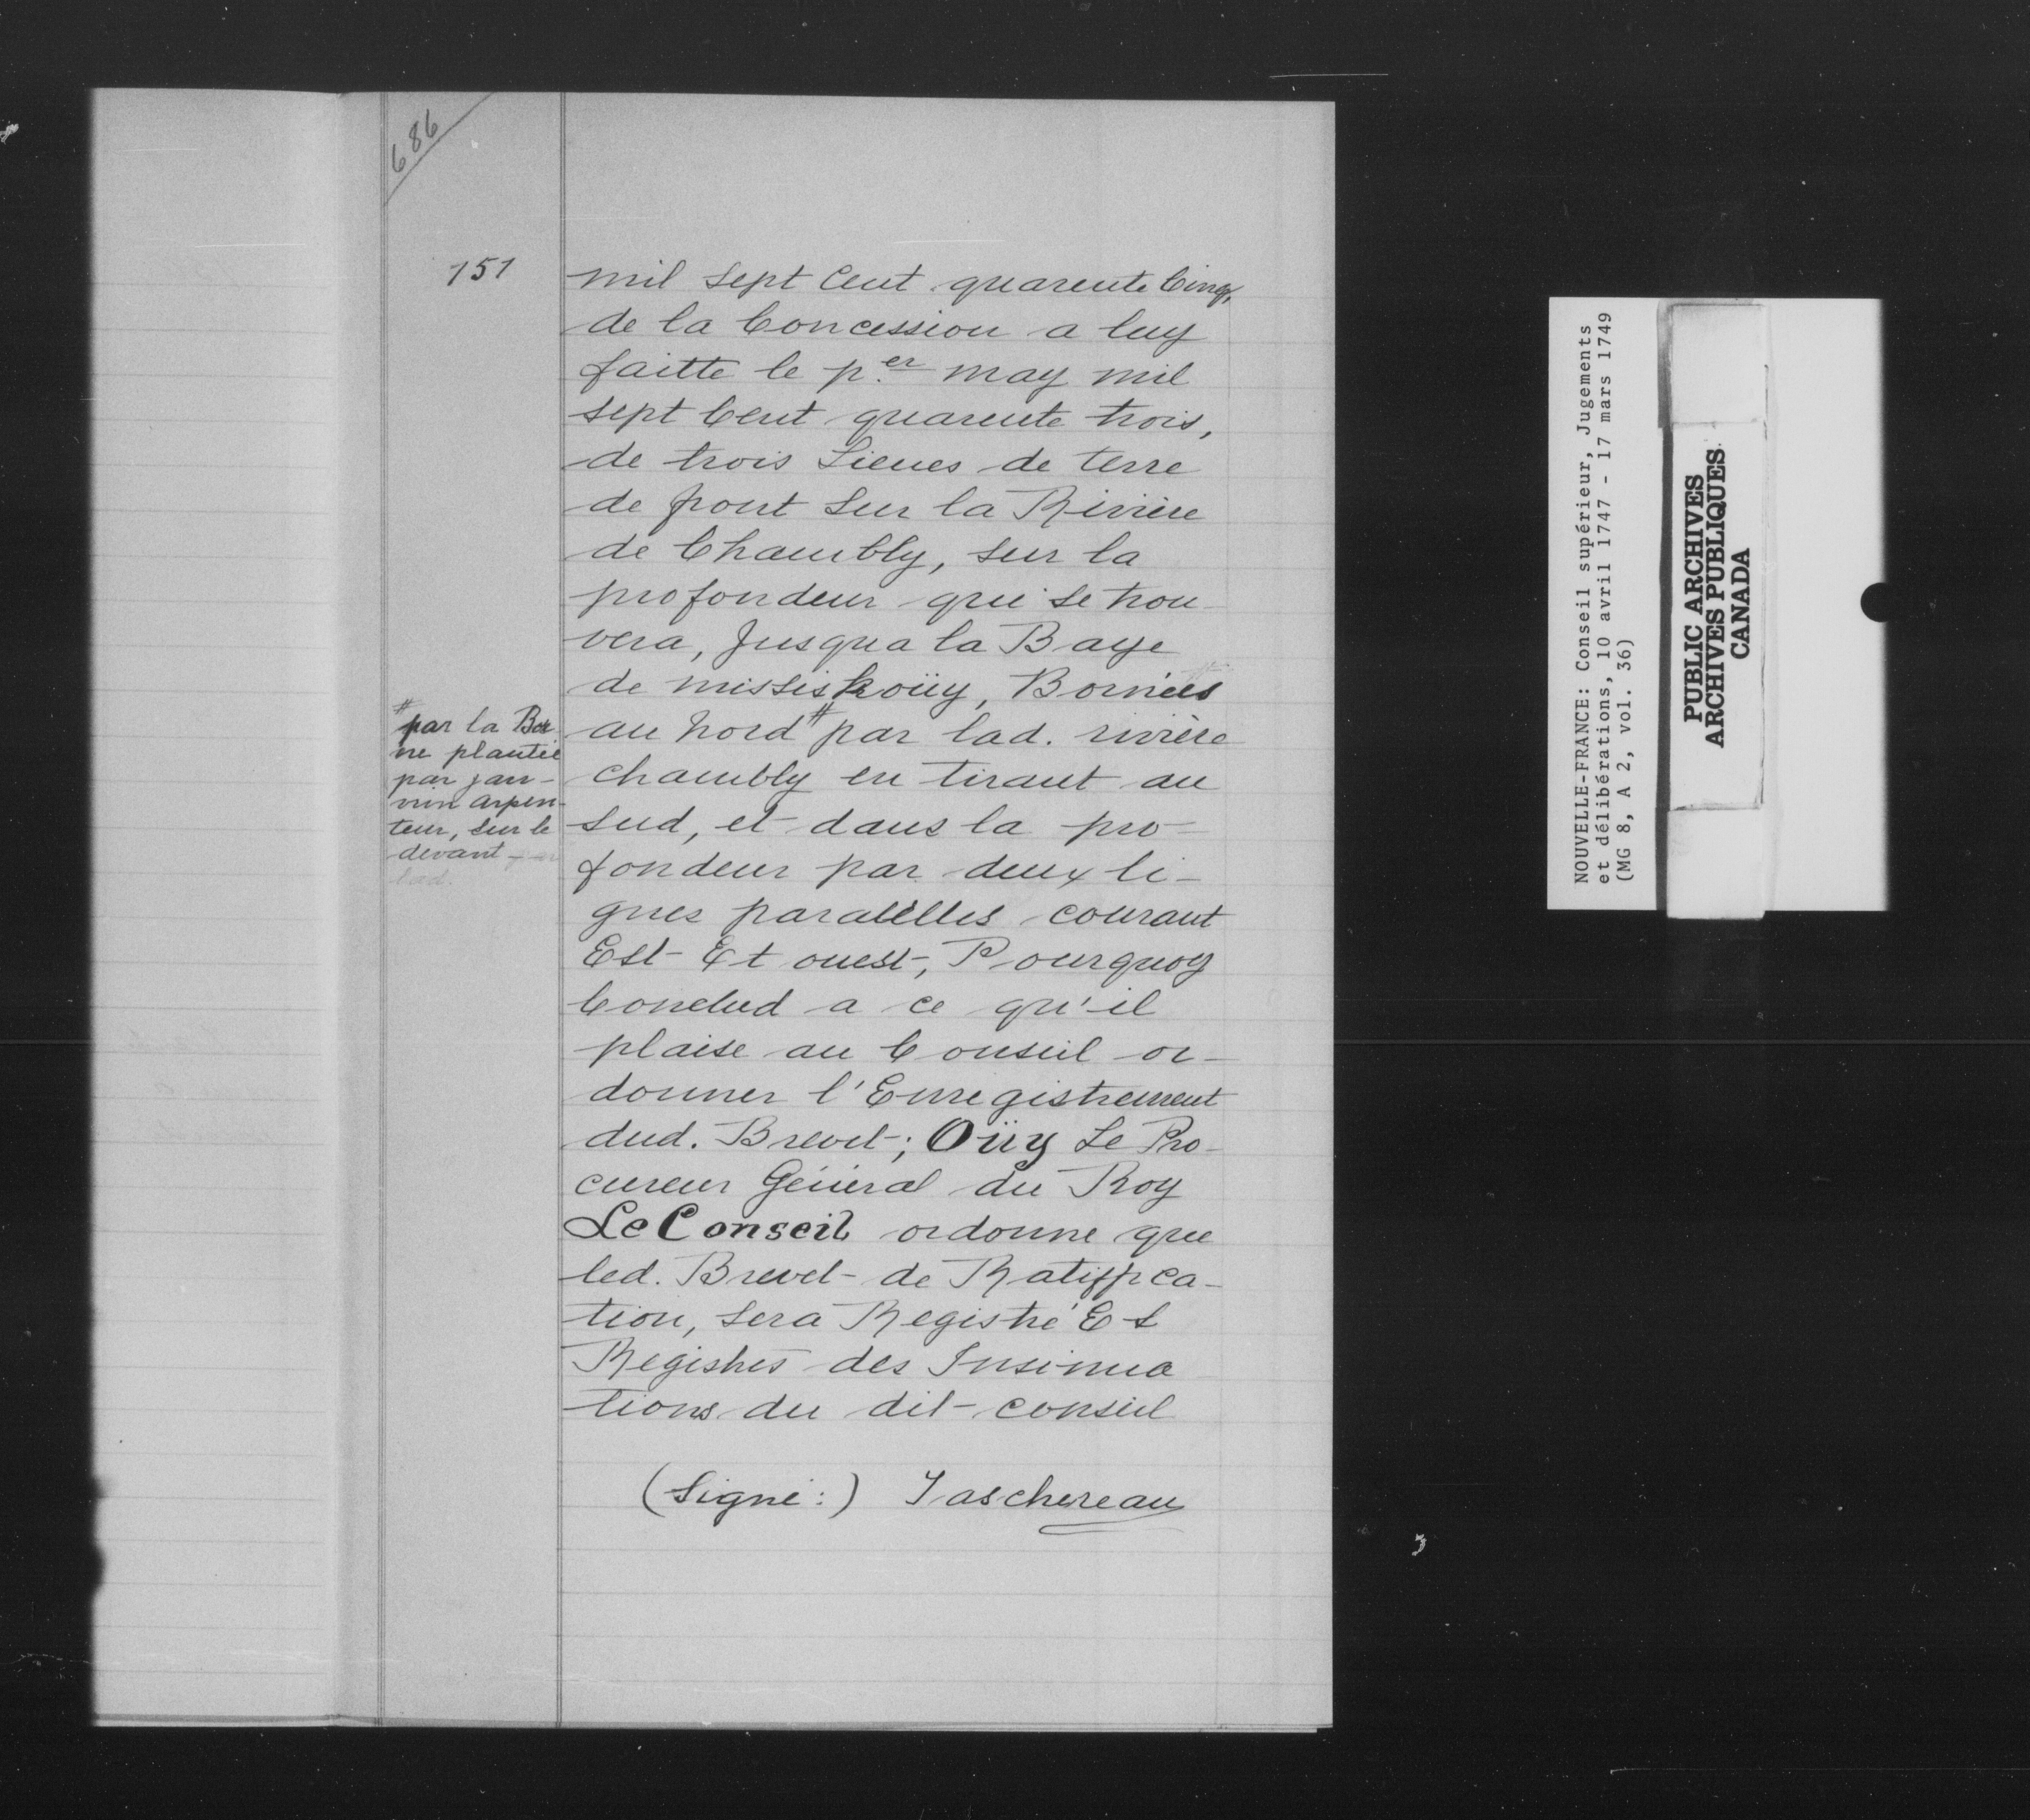 686
151
mil sept Cent quarente Cinq,
de la Concession a luy
faitte le p.er may mil
sept Cent quarente trois,
de trois Lieues de terre
de front sur la Rivière
de Chambly, sur la
profondeur qui se trou-
vera, Jusqua la Baye
de missiskoüy, Bornées
au nord # par lad. rivière
chambly en tirant au
sud, et dans la pro-
fondeur par deux li-
gnes paralèlles courant
Est Et ouest, Pourquoy
Conclud a ce qu'il
plaise au Conseil or-
donner l'Enregistrement
dud. Brevet; Oüy Le Pro-
cureur Général du Roy
Le Conseil ordonne que
led. Brevet de Ratiffica-
tion, sera Registré Es
Registres des Insinua
tions du dit conseil
(Signé:) Taschereau
# par la Bor
ne plantée
par jan-
vrin arpen-
teur, sur le
devant par
lad.
NOUVELLE-FRANCE: Conseil supérieur, Jugements
et délibérations, 10 avril 1747 - 17 mars 1749
(MG 8, A 2, vol. 36)
PUBLIC ARCHIVES
ARCHIVES PUBLIQUES
CANADA